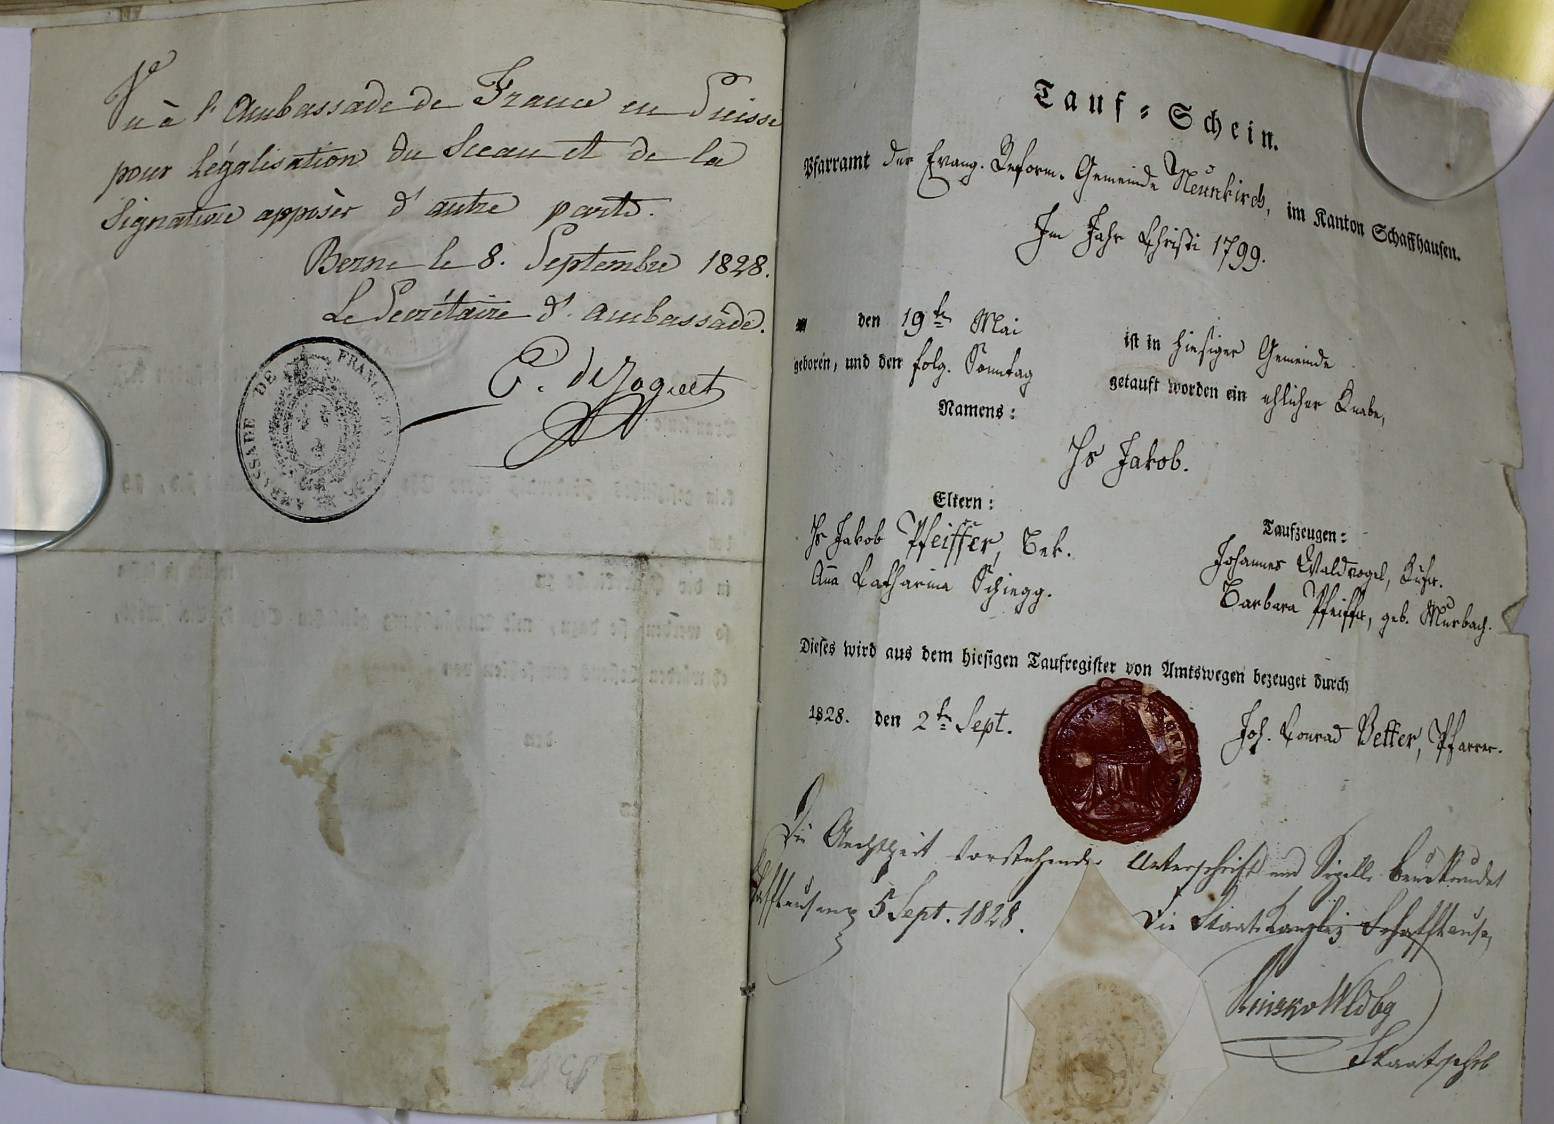 Vu à l'Ambassade de France en Suisse
pour légalisation du Sceau et de la
signature apposés d'autre part.
Berne le 8. Septembre 1828.
Le Secrétaire d'ambassade.
AMBASSADE DE FRANCE EN SUISSE
Tauf-Schein.
Pfarramt der Evang. Reform. Gemeinde Neunkirch, im Kanton Schaffhausen.
Im Jahr Christi 1799.
den 19te Mai ist in hiesiger Gemeinde
geboren, und den folg. Sonntag getauft worden ein ehlicher Knabe,
Namens:
Hs Jakob.
Eltern:
Taufzeugen:
Hs Jakob Pfeiffer, Bek.
Johannes Waldvogel, Küfer.
Aña Catharina Schiegg.
Barbara Pfeiffer, geb. Murbach.
Dieses wird aus dem hiesigen Taufregister von Amtswegen bezeuget durch
1828. den 2te Sept. Joh. Conrad Vetter, Pfarrer.
Die Aechtheit vorstehender Unterschrift und Sigells beurkundet
Schaffhausen 5 Sept. 1828. Die Staatskanzley Schaffhausen,
Staatschrb